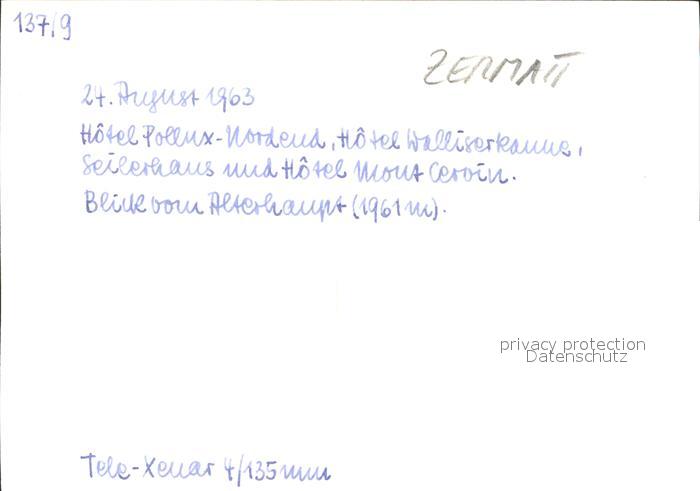 137/9
ZERMATT
24. August 1963
Hôtel Pollux-Nordend, Hôtel Walliserkanne,
Seilerhaus und Hôtel Mont Cervin.
Blick vom Alterhaupt (1961 m).
privacy protection
Datenschutz
Tele-Xenar 4/135 mm